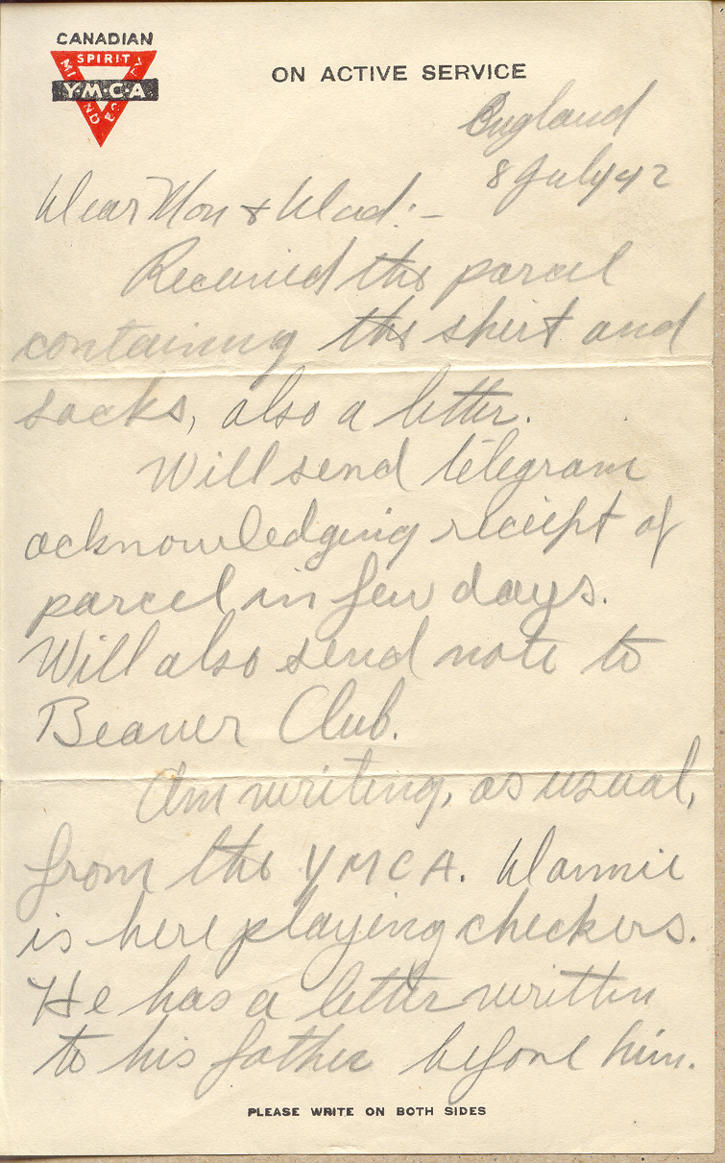 CANADIAN
SPIRIT
MIND
Y·M·C·A
BODY
ON ACTIVE SERVICE
England
8 July 42
Dear Mon & Dad:-
Received the parcel
containing the shirt and
socks, also a letter.
Will send telegram
acknowledging receipt of
parcel in few days.
Will also send note to
Beaver Club.
Am writing, as usual,
from the YMCA. Dannie
is here playing checkers.
He has a letter written
to his father before him.
PLEASE WRITE ON BOTH SIDES